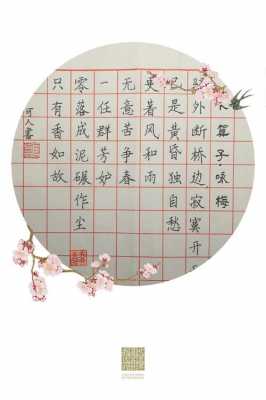 卜算子咏梅
驿外断桥边寂寞开
已是黄昏独自愁
更着风和雨
无意苦争春
一任群芳妒
零落成泥碾作尘
只有香如故
可人書